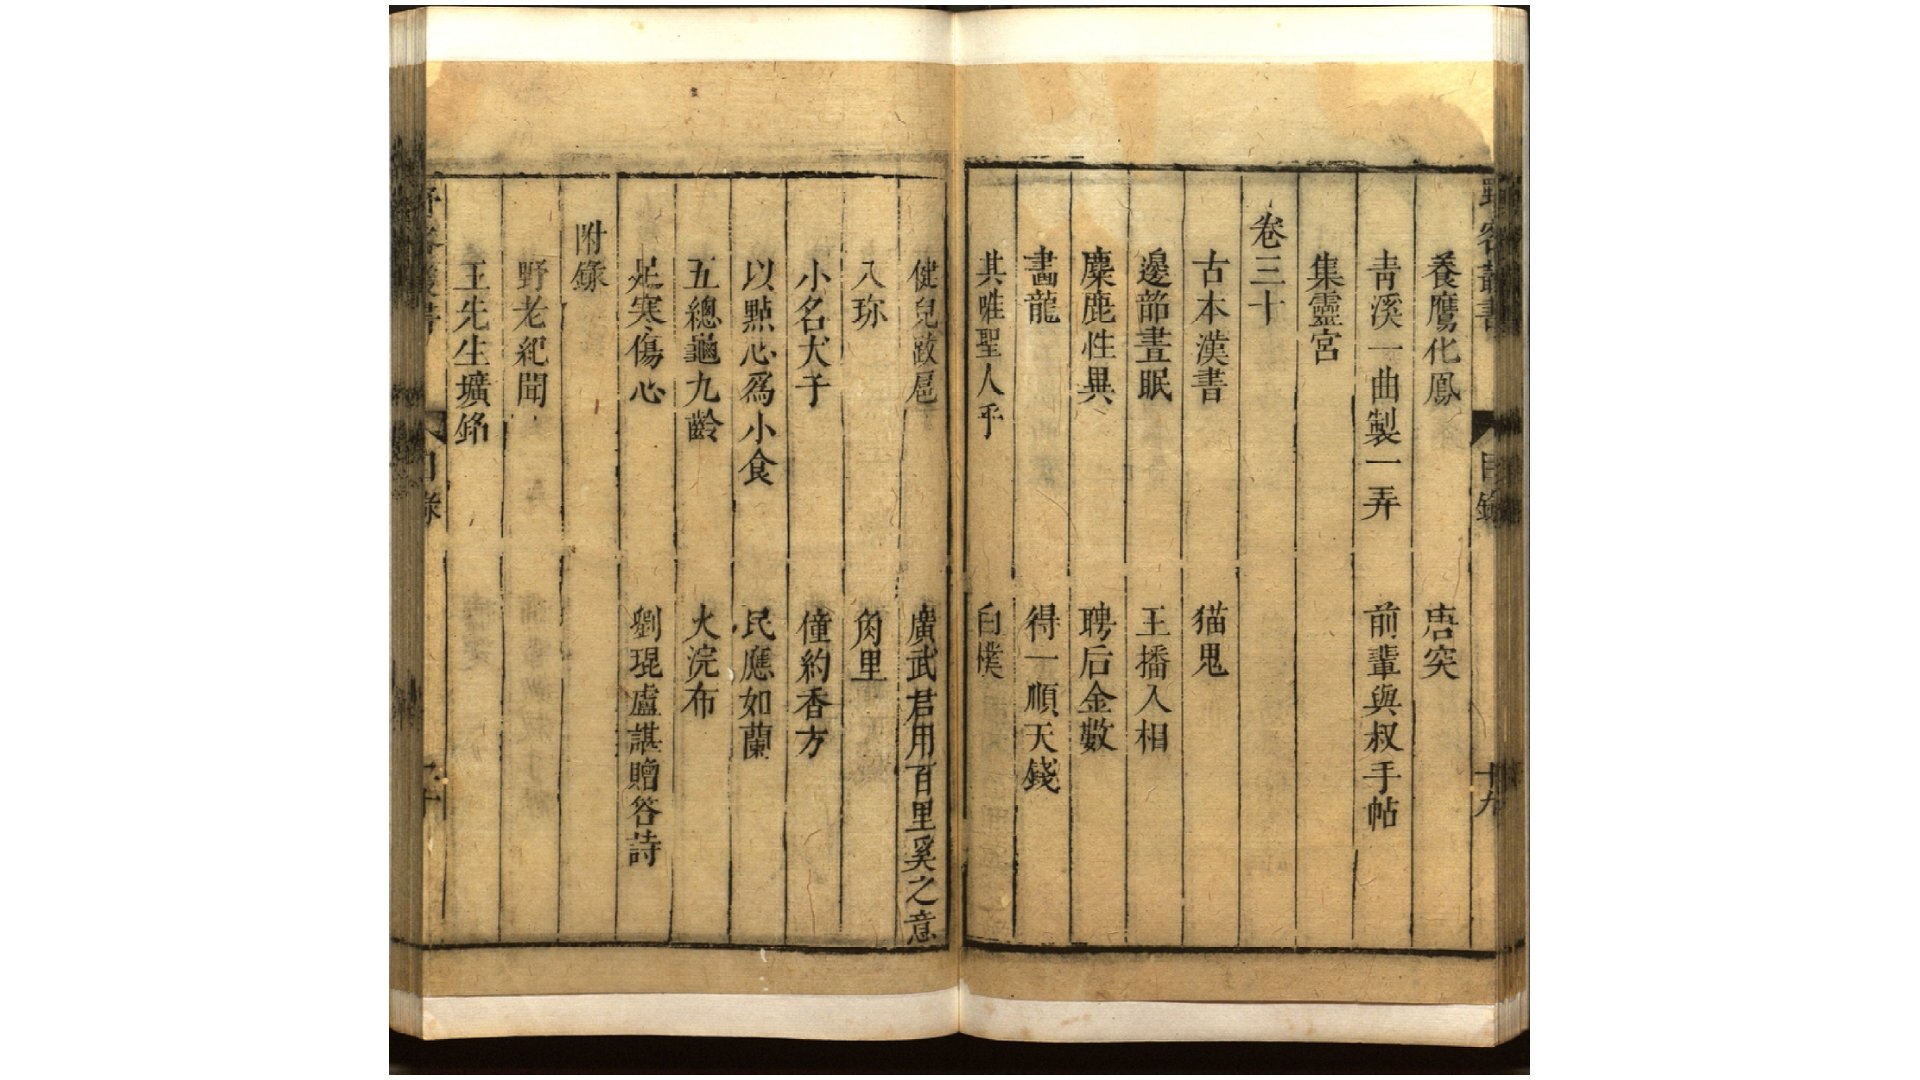 野客叢書
目錄
十九
養鷹化鳳
唐突
青溪一曲製一弄
前輩與叔手帖
集靈宮
卷三十
古本漢書
猫鬼
邊韶晝眠
王播入相
麋鹿性異
聘后金數
畫龍
得一順天錢
其唯聖人乎
白樸
健兒
廣武君用百里奚之意
入珎
角里
小名犬子
僮約香方
以點心爲小食
民應如蘭
五總龜九齡
火浣布
足寒傷心
劉琨盧諶贈答詩
附錄
野老紀聞
王先生壙銘
目錄